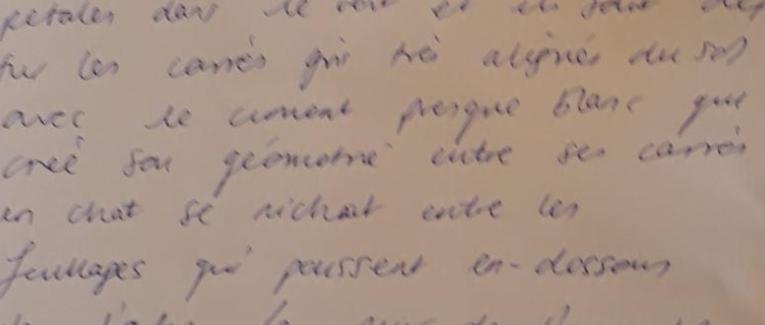 pétales dans le vent et
sur les carrés gris très alignés du sol
avec le ciment presque blanc que
créé son géométrie entre ses carrés
un chat se nichait entre les
feuillages qui poussent en-dessous